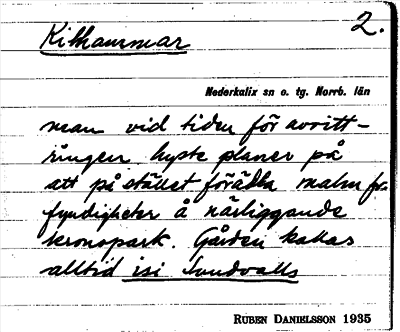 Kilhammar
2.
Nederkalix sn o. tg. Norrb. län
man vid tiden för avvitt-
ringen hyste planer på
att på stället förädla malm fr.
fyndigheter å närliggande
kronopark. Gården kallas
alltid isi Sundvalls
RUBEN DANIELSSON 1935